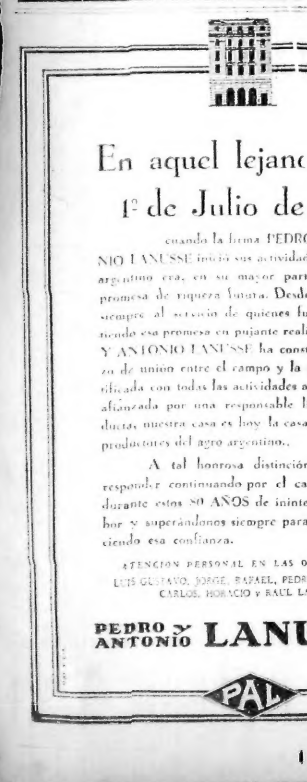 En aquel lejano
1º de Julio de
cuando la firma PEDRO
NIO LANUSSE inició sus actividad
argentino era, en su mayor part
promesa de riqueza futura. Desde
siempre al servicio de quienes fu
tiendo esa promesa en pujante reali
Y ANTONIO LANUSSE ha const
zo de unión entre el campo y la
tificada con todas las actividades a
afianzada por una responsable l
ducta, nuestra casa es hoy la casa
productores del agro argentino.
A tal honrosa distinción
responder continuando por el ca
durante estos 80 AÑOS de ininte
bor y superándonos siempre para
ciendo esa confianza.
ATENCION PERSONAL EN LAS O
LUIS GUSTAVO, JORGE, RAFAEL, PEDR
CARLOS, HORACIO y RAUL LA
PEDRO Y
ANTONIO LANU
PAL